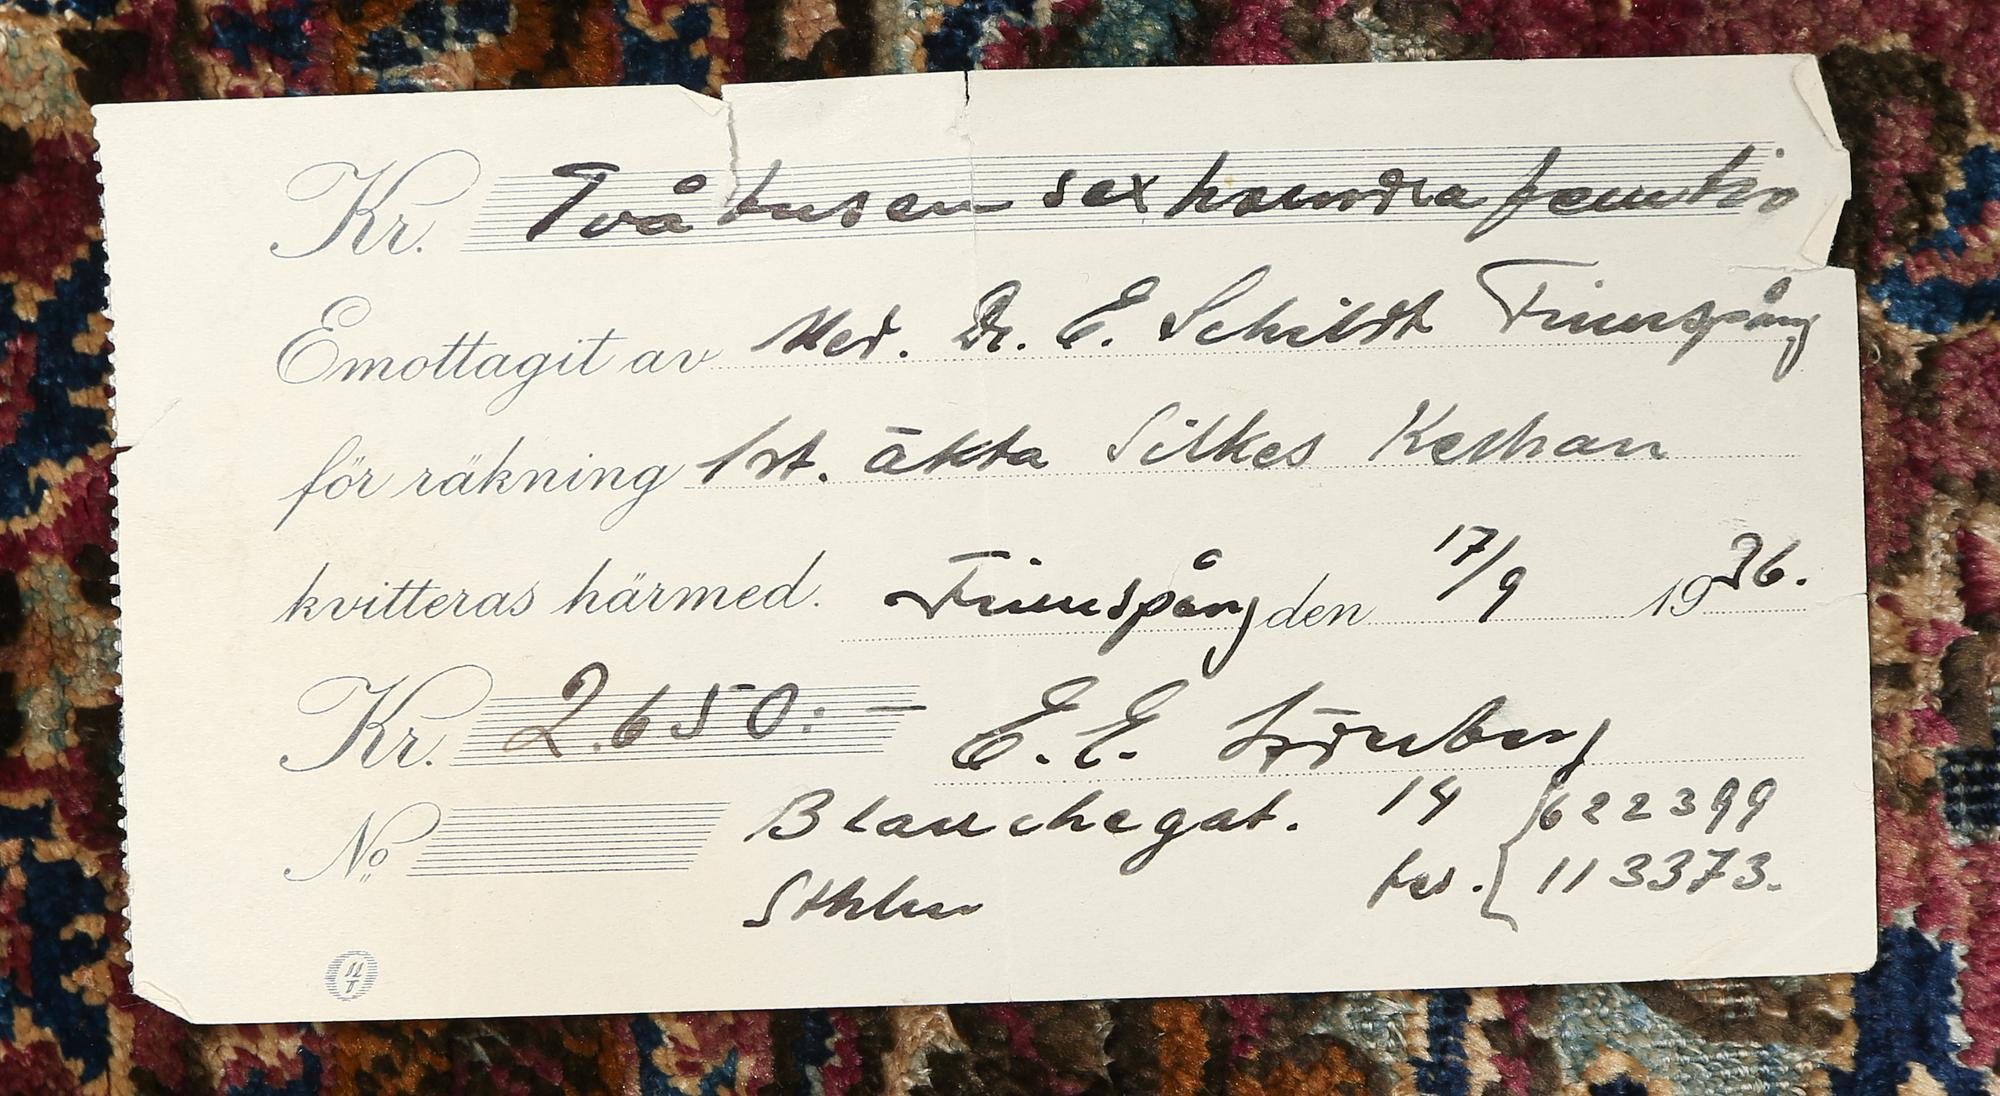 Kr. Tvåtusen sexhundra femtio
Emottagit av Med. Dr. E. Schildt Finnspång
för räkning 1 st. äkta Silkes Keshan
kvitteras härmed. Finnspång den 17/9 1936.
Kr. 2.650:- E. E.
No Blanchegat. 14 622399
Sthlm tel. 113373.